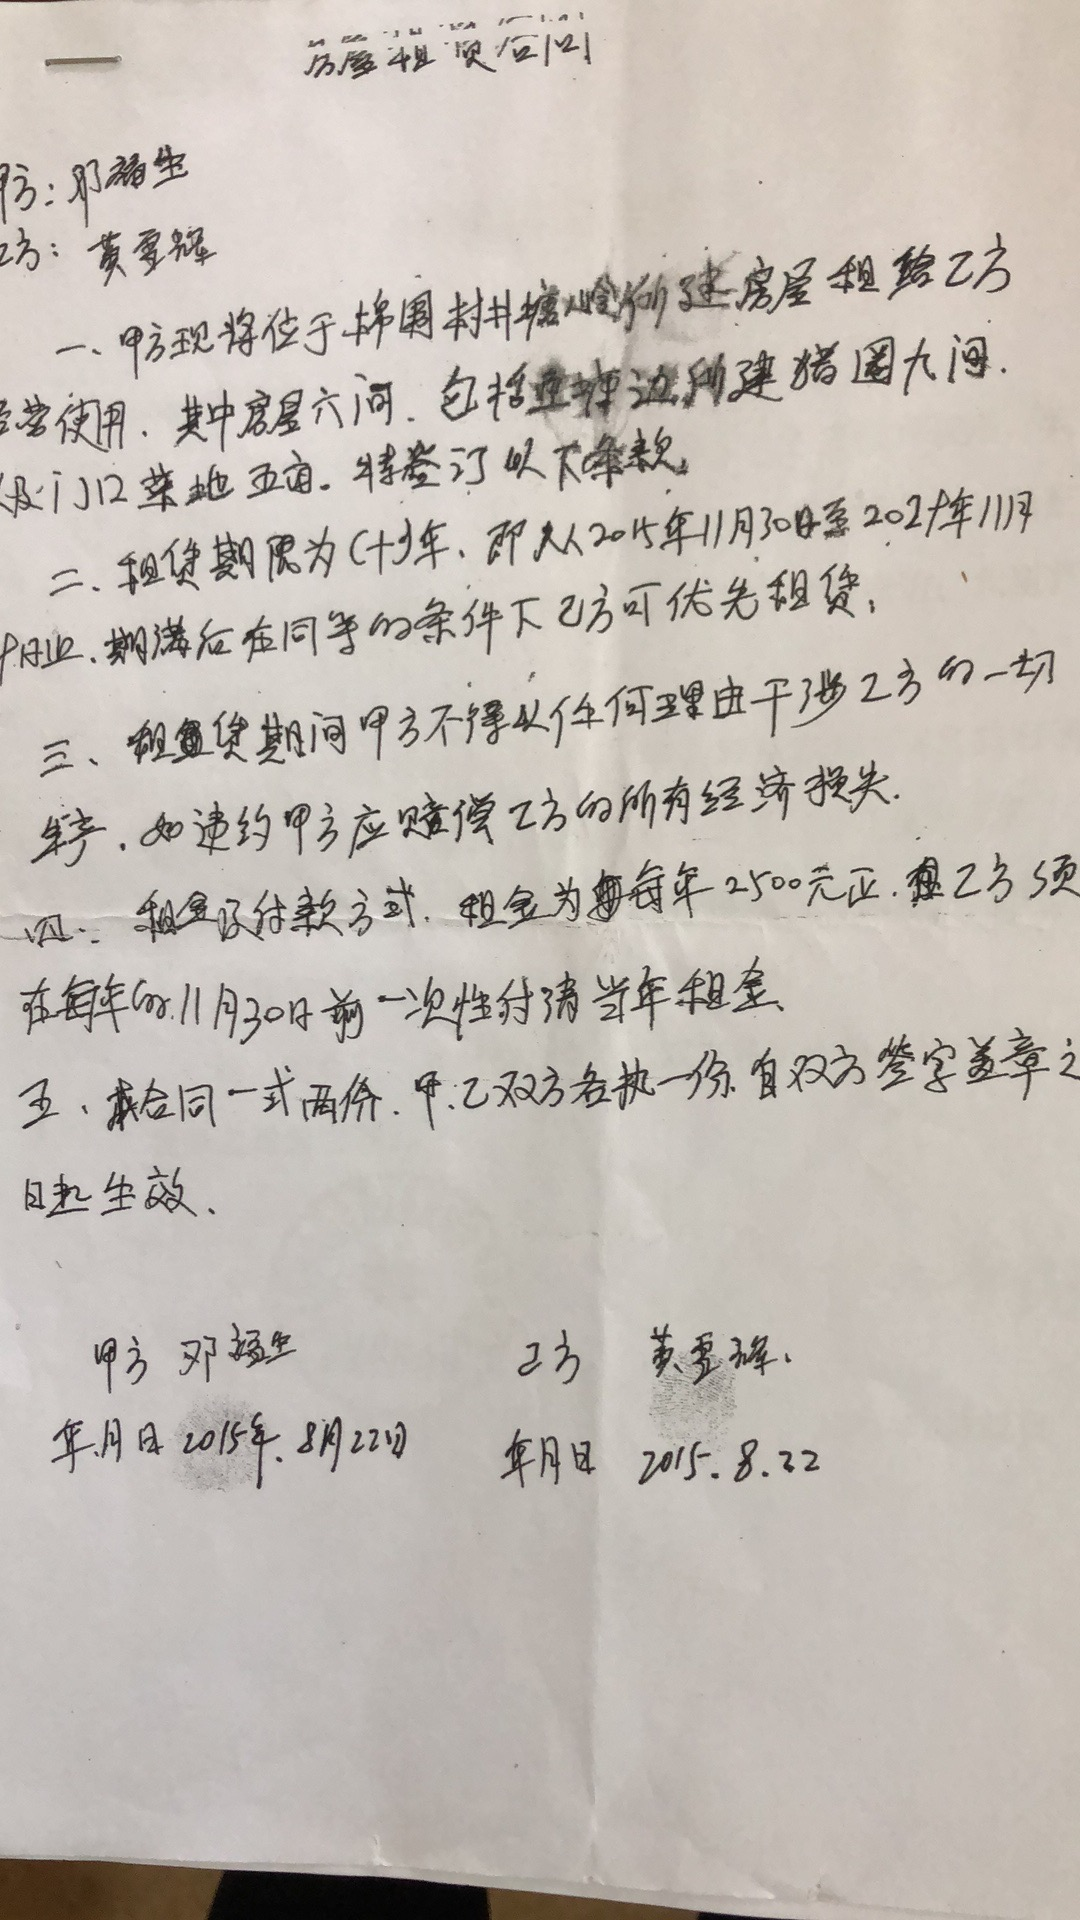 房屋租赁合同
甲方：邓福生
乙方：黄雪辉
一、甲方现将位于棉围村井塘岭所建房屋租给乙方
经营使用、其中房屋六间、包括边所建猪圈九间、
以及门口菜地五亩。特签订以下条款。
二、租赁期限为(十)年、即从2015年11月30日至年11月
日止、期满后在同等的条件下乙方可优先租赁。
三、租赁期间甲方不得以任何理由干涉乙方的一切
生产、如违约甲方应赔偿乙方的所有经济损失.
四、租金及付款方式、租金为每年2500元正、乙方须
在每年的11月30日前一次性付清当年租金、
五、本合同一式两份、甲、乙双方各执一份、自双方签字盖章之
日起生效、
甲方 邓福生 乙方 黄雪辉.
年月日 2015年.8月22日 年月日 2015.8.22